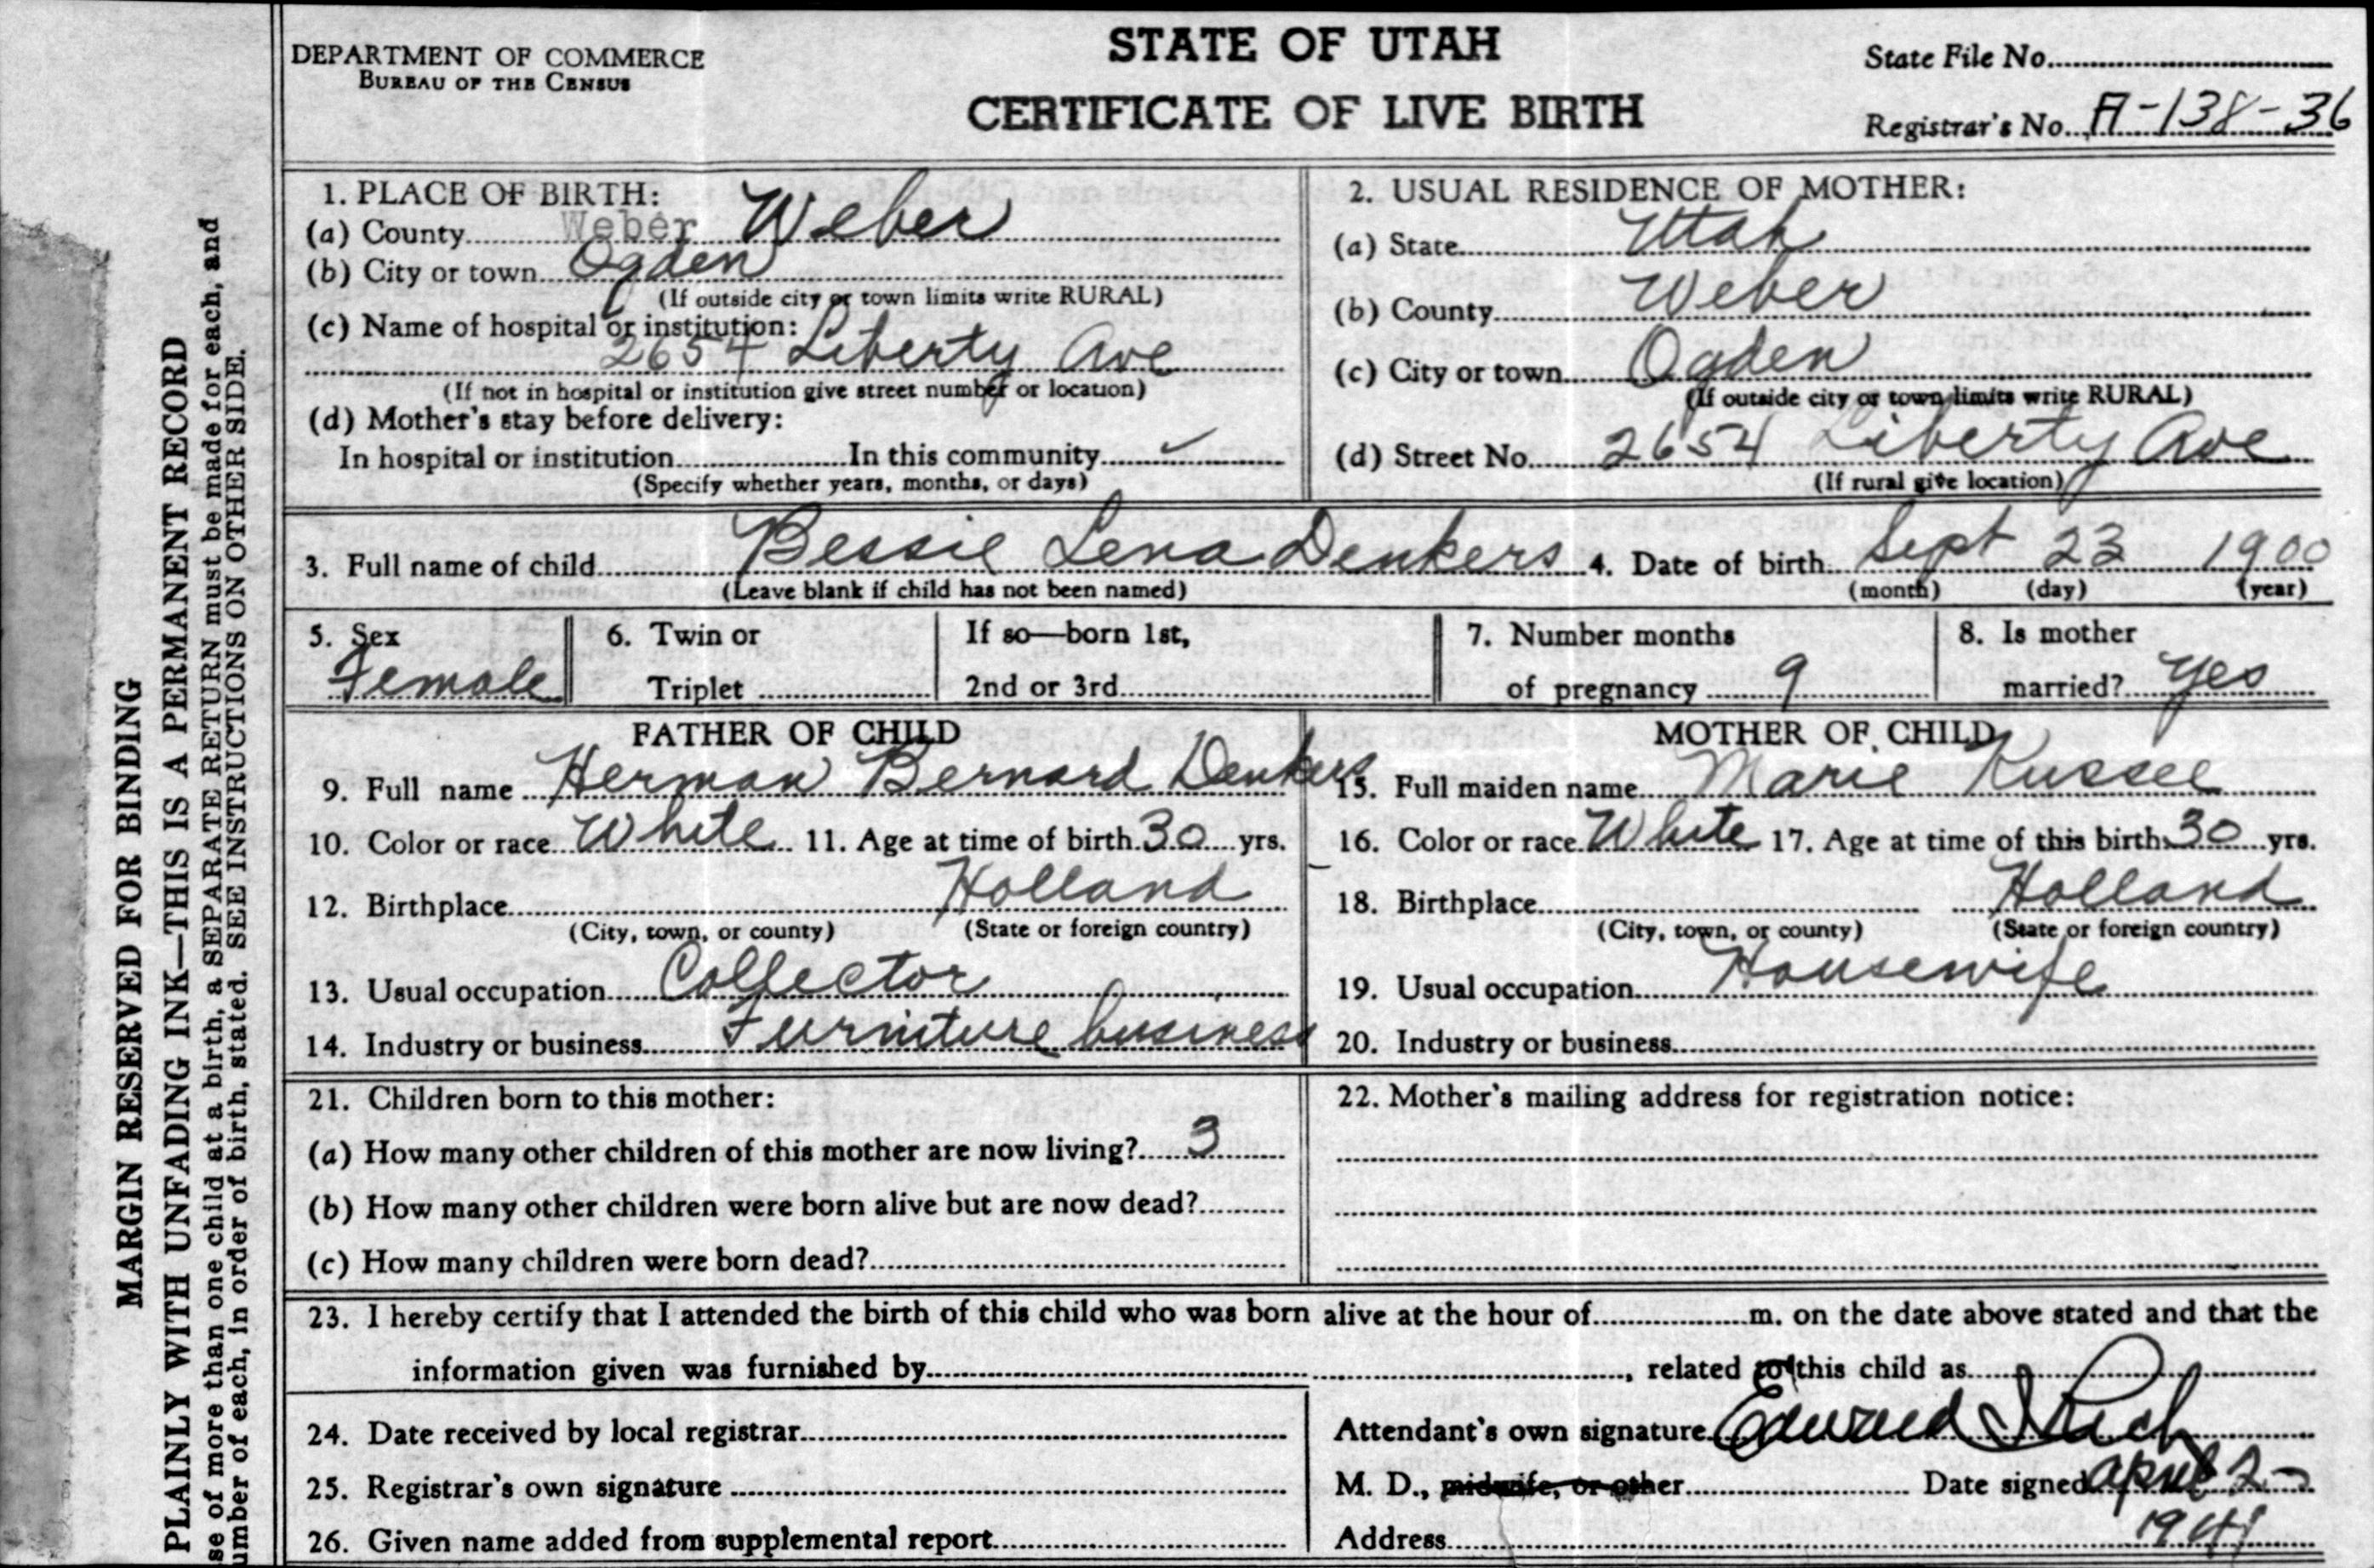 DEPARTMENT OF COMMERCE
BUREAU OF THE CENSUS
STATE OF UTAH
CERTIFICATE OF LIVE BIRTH
State File No.
Registrar's No. A-138-36
MARGIN RESERVED FOR BINDING
PLAINLY WITH UNFADING INK—THIS IS A PERMANENT RECORD
se of more than one child at a birth, a SEPARATE RETURN must be made for each, and
umber of each, in order of birth, stated. SEE INSTRUCTIONS ON OTHER SIDE.
1. PLACE OF BIRTH:
(a) County Weber Weber
(b) City or town Ogden
(If outside city or town limits write RURAL)
(c) Name of hospital or institution:
2654 Liberty Ave
(If not in hospital or institution give street number or location)
(d) Mother's stay before delivery:
In hospital or institution In this community ✓
(Specify whether years, months, or days)
2. USUAL RESIDENCE OF MOTHER:
(a) State Utah
(b) County Weber
(c) City or town Ogden
(If outside city or town limits write RURAL)
(d) Street No. 2654 Liberty Ave
(If rural give location)
3. Full name of child Bessie Lena Denkers 4. Date of birth Sept 23 1900
(Leave blank if child has not been named) (month) (day) (year)
5. Sex
Female
6. Twin or
Triplet
If so—born 1st,
2nd or 3rd
7. Number months
of pregnancy 9
8. Is mother
married? Yes
FATHER OF CHILD
9. Full name Herman Bernard Denkers
10. Color or race White 11. Age at time of birth 30 yrs.
12. Birthplace Holland
(City, town, or county) (State or foreign country)
13. Usual occupation Collector
14. Industry or business Furniture business
MOTHER OF CHILD
15. Full maiden name Marie Kussee
16. Color or race White 17. Age at time of this birth 30 yrs.
18. Birthplace Holland
(City, town, or county) (State or foreign country)
19. Usual occupation Housewife
20. Industry or business
21. Children born to this mother:
(a) How many other children of this mother are now living? 3
(b) How many other children were born alive but are now dead?
(c) How many children were born dead?
22. Mother's mailing address for registration notice:
23. I hereby certify that I attended the birth of this child who was born alive at the hour of m. on the date above stated and that the
information given was furnished by , related to this child as
24. Date received by local registrar
25. Registrar's own signature
26. Given name added from supplemental report
Attendant's own signature Edward I Rich
M. D., midwife, or other Date signed April 2-
Address 1941